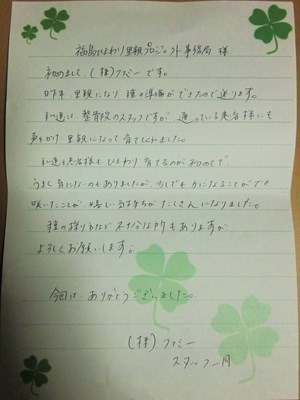 福島ひまわり里親プロジェクト事務局 様
初めまして、(株)ファミーです。
昨年 里親になり 種の準備ができたので送ります。
私達は、整骨院のスタッフですが、通っている患者様にも
声をかけ 里親になって育てくれました。
私達も患者様もひまわり育てるのが初めてで
うまく育たないものもありましたが、少しでも力になることができ
咲いたことが、嬉しい気持ちがたくさんになりました。
種の採り方など 不十分な所もありますが
よろしくお願いします。
今回は、ありがとうございました。
(株)ファミー
スタッフ一同